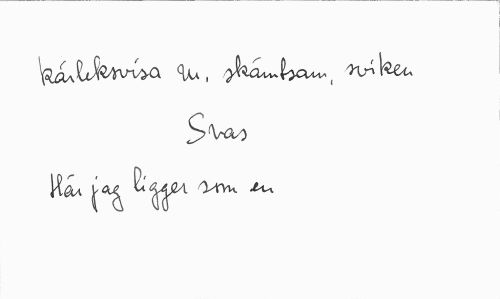 kärleksvisa m, skämtsam, sviken
Svas
Här jag ligger som en